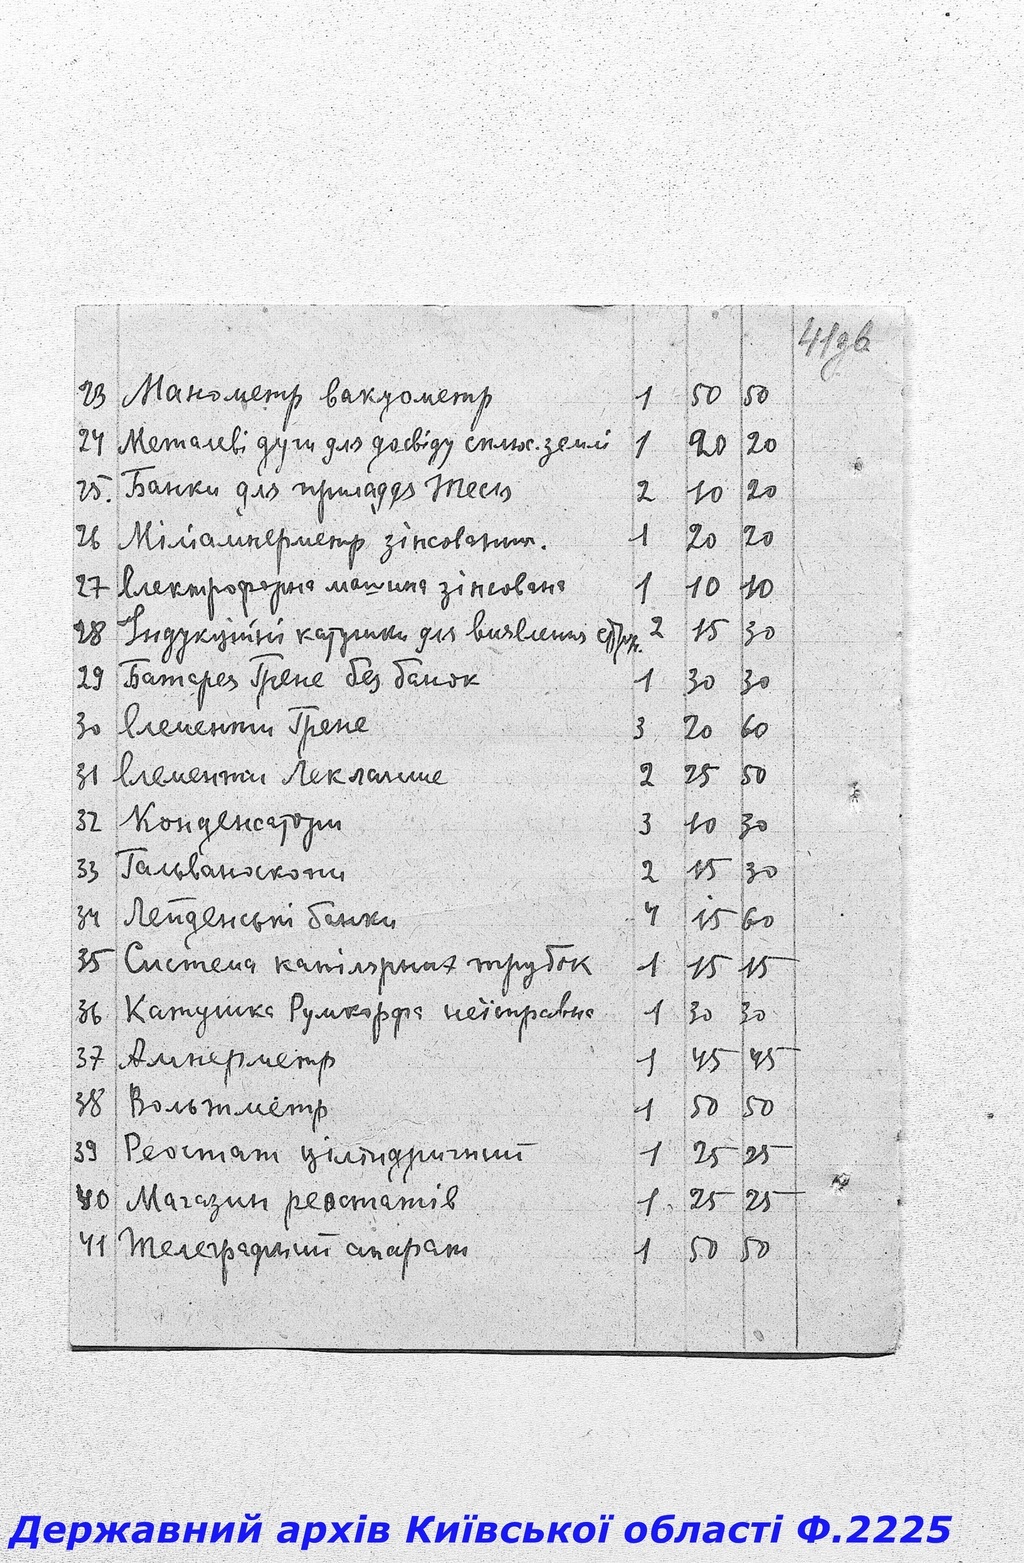 41зв
23 Манометр вакуометр 1 50 50
24 Металеві дуги для досвіду сплюс. землі 1 20 20
25. Банки для приладдя Тесл 2 10 20
26 Міліамперметр зіпсований. 1 20 20
27 Електрофорна машина зіпсована 1 10 10
28 Індукційні катушки для виявлення 2 15 30
29 Батарея Грене без банок 1 30 30
30 Елементи Грене 3 20 60
31 Елементи Лекланше 2 25 50
32 Конденсатори 3 10 30
33 Гальваноскопи 2 15 30
34 Лейденські банки 4 15 60
35 Система капілярних трубок 1 15 15
36 Катушка Румкорфа неісправна 1 30 30
37 Амперметр 1 45 45
38 Вольтметр 1 50 50
39 Реостат циліндричний 1 25 25
40 Магазин реостатів 1 25 25
41 Телеграфний апарат 1 50 50
Державний архів Київської області Ф.2225